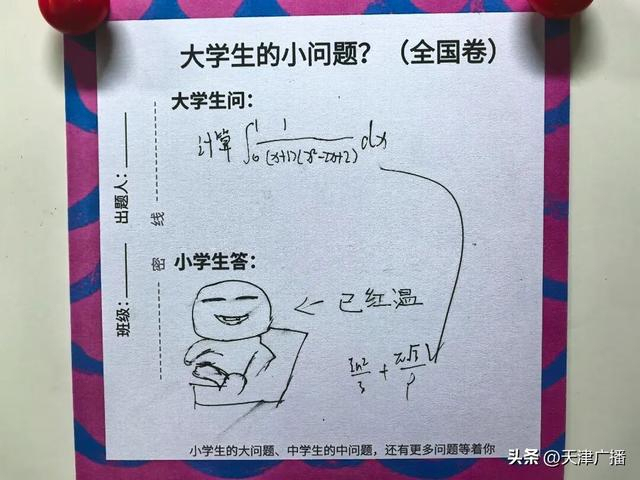 大学生的小问题?（全国卷）
大学生问:
计算 ∫₀¹ 1/((x+1)(x²-2x+2)) dx
出题人:
线
密
班级:
小学生答:
← 已红温
ln2/3 +
小学生的大问题、中学生的中问题，还有更多问题等着你
头条 @天津广播